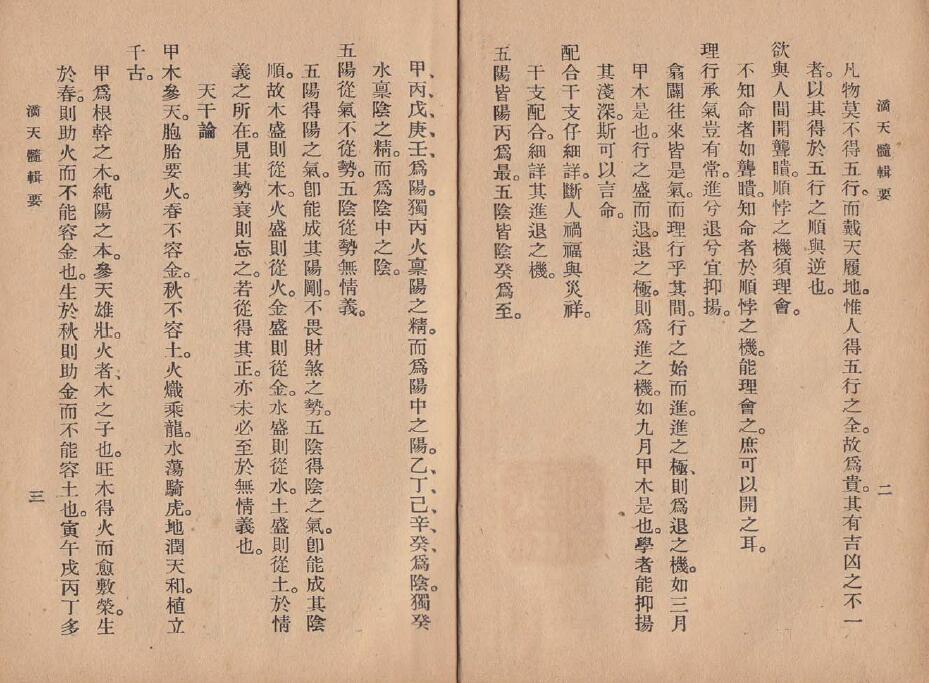 滴天髓輯要
二
凡物莫不得五行。而戴天履地。惟人得五行之全。故爲貴。其有吉凶之不一
者。以其得於五行之順與逆也。
欲與人間開聾瞶。順悖之機須理會。
不知命者如聾瞶。知命者於順悖之機。能理會之。庶可以開之耳。
理行承氣豈有常。進兮退兮宜抑揚。
翕闢往來皆是氣。而理行乎其間。行之始而進。進之極、則爲退之機。如三月
甲木是也。行之盛而退。退之極。則爲進之機。如九月甲木是也。學者能抑揚
其淺深。斯可以言命。
配合干支仔細詳。斷人禍福與災祥。
干支配合。細詳其進退之機。
五陽皆陽丙爲最。五陰皆陰癸爲至。
甲、丙、戊、庚、壬爲陽。獨丙火稟陽之精。而爲陽中之陽。乙、丁、己、辛、癸爲陰。獨癸
水稟陰之精。而爲陰中之陰。
五陽從氣不從勢。五陰從勢無情義。
五陽得陽之氣。卽能成其陽剛。不畏財煞之勢。五陰得陰之氣。卽能成其陰
順。故木盛則從木。火盛則從火。金盛則從金。水盛則從水。土盛則從土。於情
義之所在。見其勢衰則忘之。若從得其正。亦未必至於無情義也。
天干論
甲木參天。胞胎要火。春不容金。秋不容土。火熾乘龍。水蕩騎虎。地潤天和。植立
千古。
甲爲根幹之木。純陽之本。參天雄壯。火者、木之子也。旺木得火而愈敷榮。生
於春。則助火而不能容金也。生於秋則助金而不能容土也。寅午戌丙丁多
滴天髓輯要
三